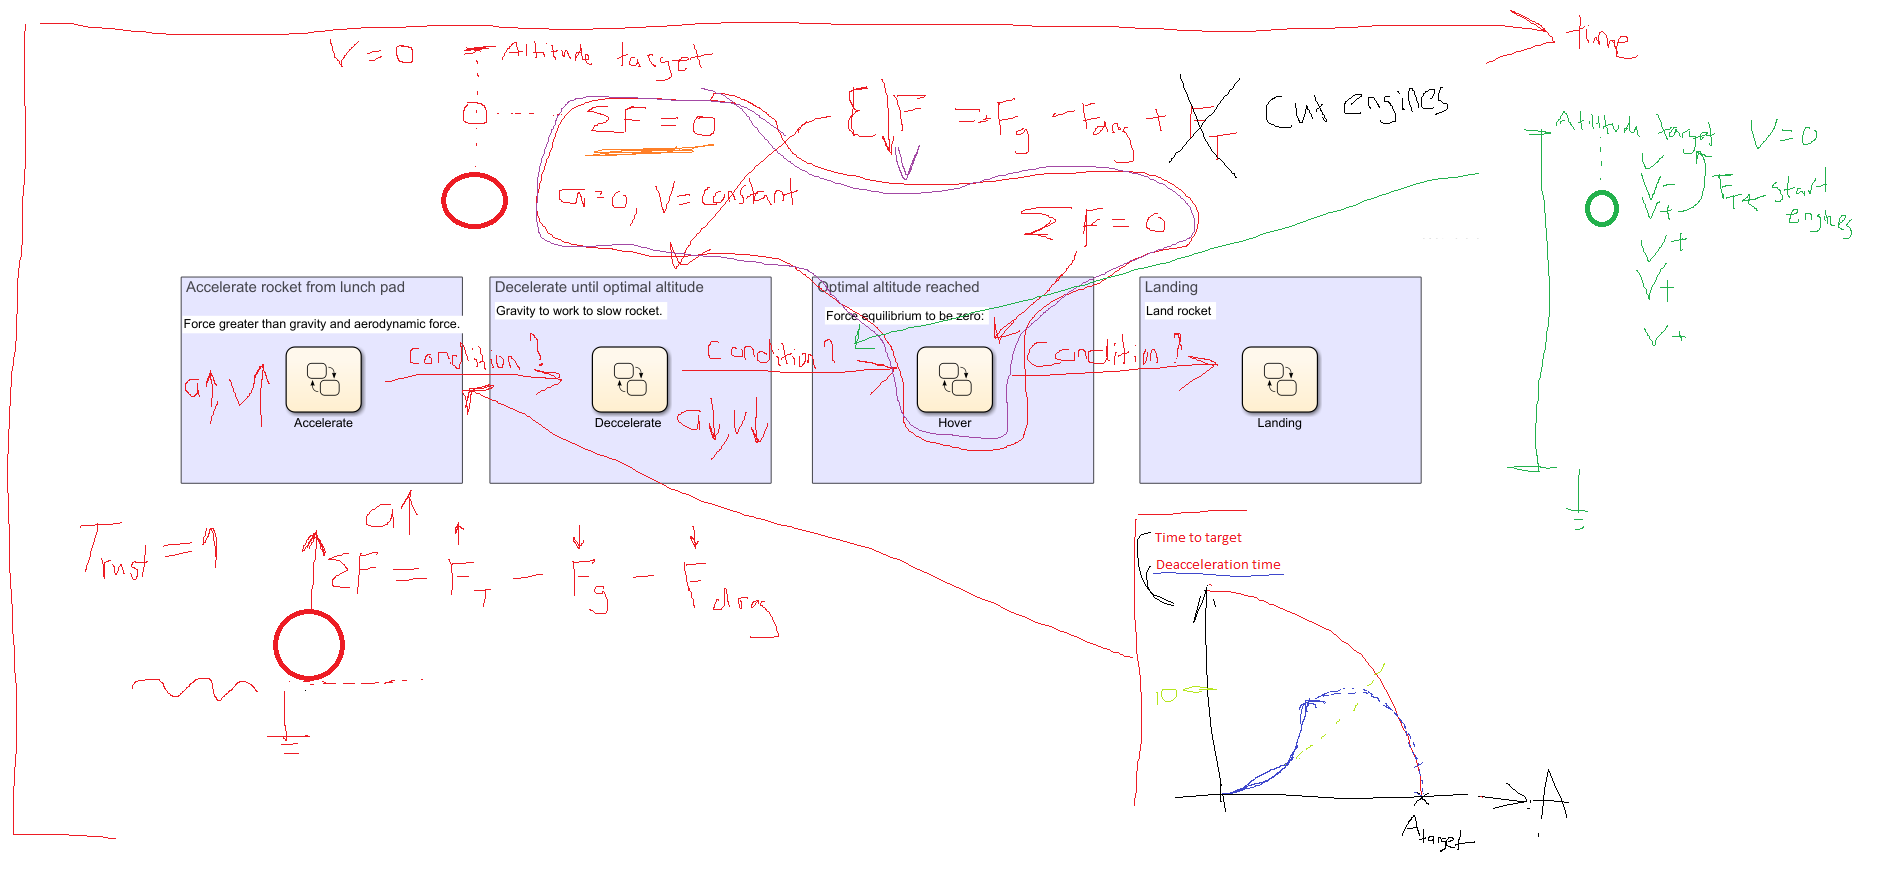 time
V = 0
Altitude target
ΣF = 0
ΣF = -Fg - Fdrag + FT
Cut engines
a=0, V=constant
ΣF = 0
Altitude target V=0
V
V-
V+
V+
V+
V+
FT ← start
engines
Accelerate rocket from lunch pad
Force greater than gravity and aerodynamic force.
a↑, V↑
Accelerate
Condition?
Decelerate until optimal altitude
Gravity to work to slow rocket.
Deccelerate
a↓, V↓
Condition?
Optimal altitude reached
Force equilibrium to be zero:
Hover
Condition?
Landing
Land rocket
Landing
Trust = 1
a↑
ΣF = FT - Fg - Fdrag
Time to target
Deacceleration time
10
A
Atarget